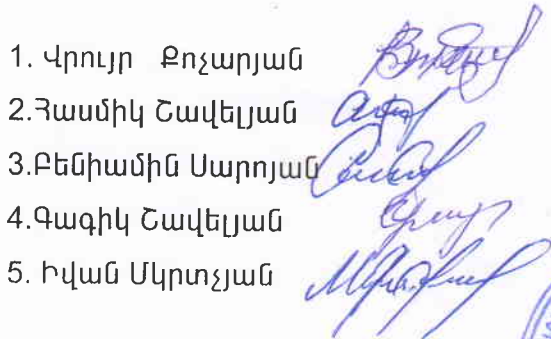 1. Վրույր Քոչարյան
2.Հասմիկ Շավելյան
3.Բենիամին Սարոյան
4.Գագիկ Շավելյան
5. Իվան Մկրտչյան